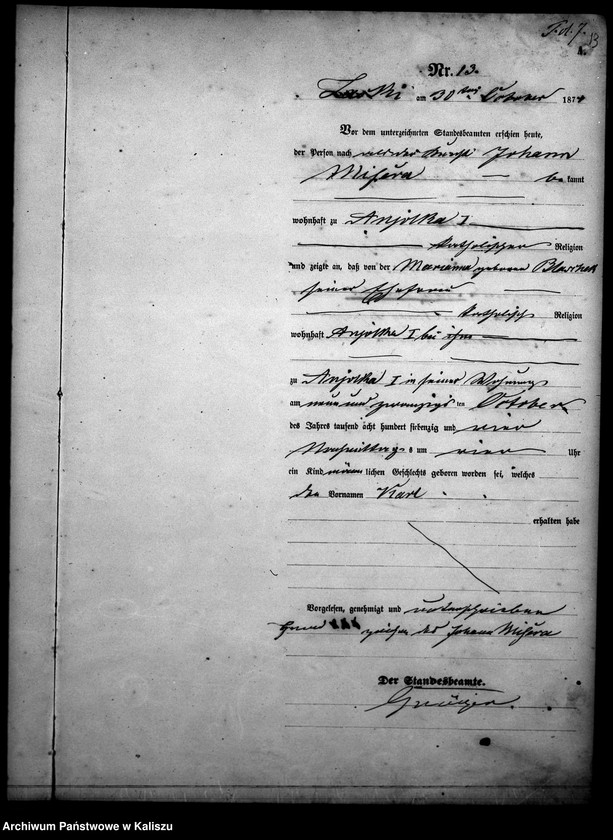 13
A.
Nr. 13.
Laski am 30ten October 1874
Vor dem unterzeichneten Standesbeamten erschien heute,
der Person nach Johann
Misura — be kannt
wohnhaft zu Anjolka I
katholischer Religion
und zeigte an, daß von der Marianna geborenen
seiner Ehefrau
katholisch Religion
wohnhaft Anjolka I bei ihm
zu Anjolka I in seiner Wohnung
am neun und zwanzigsten October
des Jahres tausend acht hundert siebenzig und vier
Nachmittags um vier Uhr
ein Kind männlichen Geschlechts geboren worden sei, welches
den Vornamen Karl
erhalten habe
Vorgelesen, genehmigt und unterschrieben
zeichen des Johann Misura
Der Standesbeamte.
Archiwum Państwowe w Kaliszu